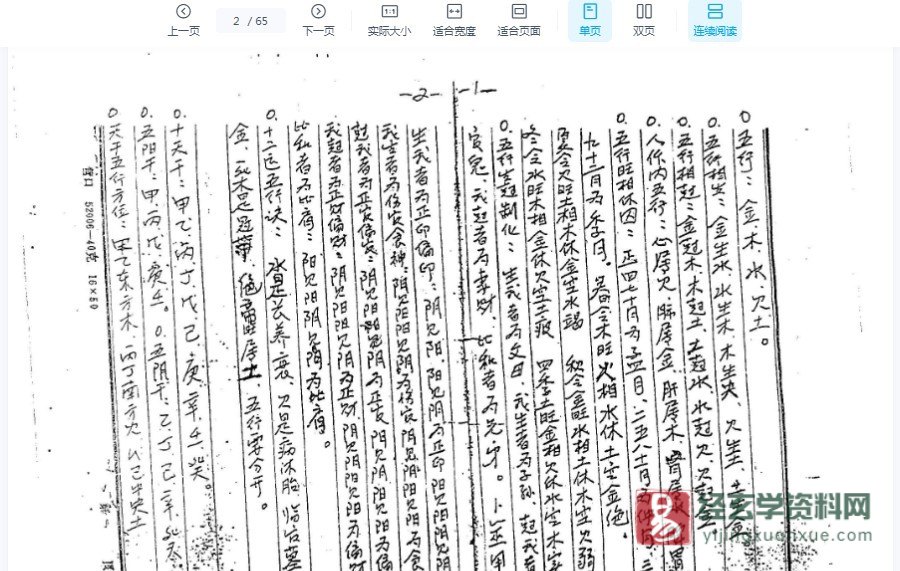 上一页 2 / 65 下一页 实际大小 适合宽度 适合页面 单页 双页 连续阅读
-2- -1-
0 五行：金、木、水、火土。
0.五行相生：金生水、水生木 木生火 火生土 土生金
0.五行相尅：金尅木、木尅土、土尅水、水尅火、火尅金。
0.人体内五行：心属火、肺属金、肝属木、
0.五行旺相休囚：正四七十月为孟月、二五八十
九十二月为季月。春令木旺火相水休土空金绝
夏令火旺土相木休金空水竭 秋令金旺水相土休木空火弱
冬令水旺木相金休火空土寂 四季土旺金相火休水空木
0.五行生尅制化：生我者为父母、我生者为子孙、尅我者
官鬼、我尅者为妻财、比和者为兄弟。
生我者为正印偏印：阴见阳、阳见阴为正印 阳见阳阴见阴
我生者为伤官食神：阴见阳阳见阴为伤官、阴见阴阳见阳为食
尅我者为正官偏官：阴见阳阳见阴为正官 阴见阴阳见阳为偏
我尅者为正财偏财：阴见阳阳见阴为正财、阴见阴阳见阳为偏
比和者为比肩：阳见阳阴见阴为比肩。
0.十二运五行诀：水是长养衰、火是病沐胎、临官墓
金、木是冠带、绝属土 五行要分开。
0.十天干：甲、乙、丙、丁、戊、己、庚、辛、壬、癸。
0.五阳干：甲、丙、戊、庚、壬。0.五阴干：乙、丁、己、辛、癸
0 天干五行方位：甲乙东方木、丙丁南方火、戊己中央土
52006—40克 16×50
易 经玄学资料网
yijingxuanxue.com